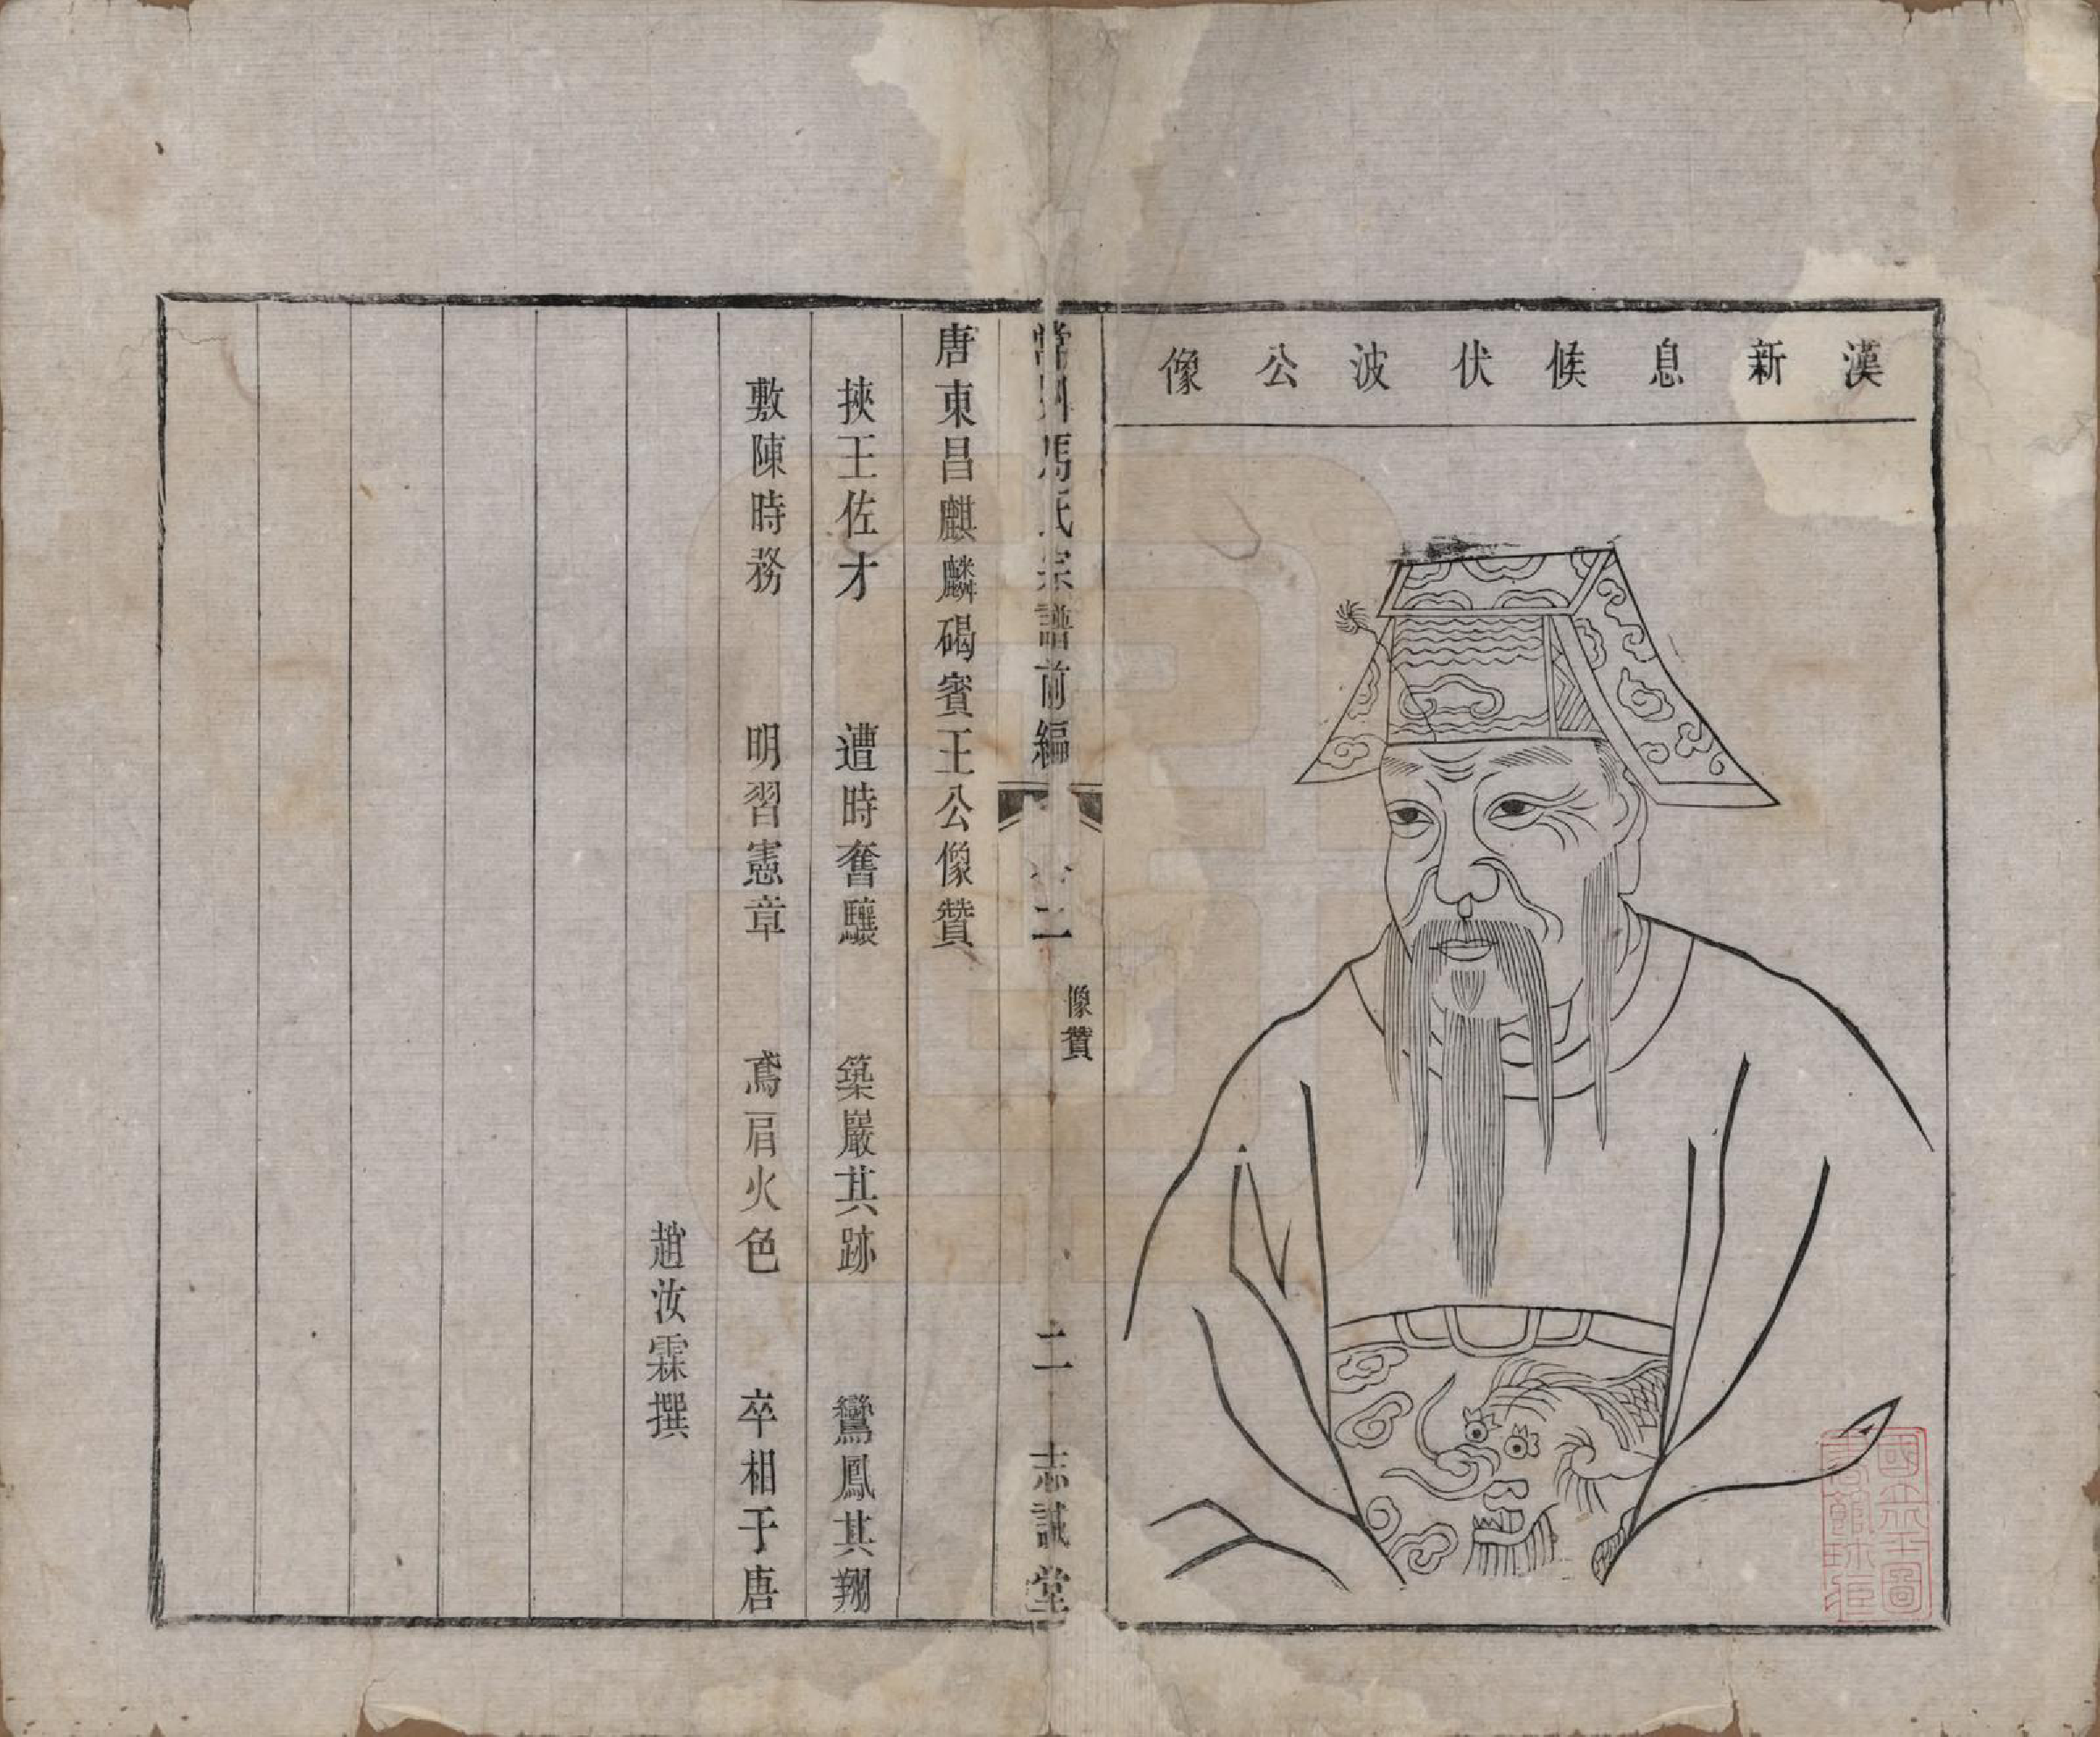 漢新息候伏波公像
常州馬氏宗譜前編
卷二
像贊
二
志誠堂
唐東昌麒麟碣賓王公像贊
挾王佐才 遭時奮驤 築巖其跡 鸞鳳其翔
敷陳時務 明習憲章 鳶肩火色 卒相于唐
趙汝霖撰